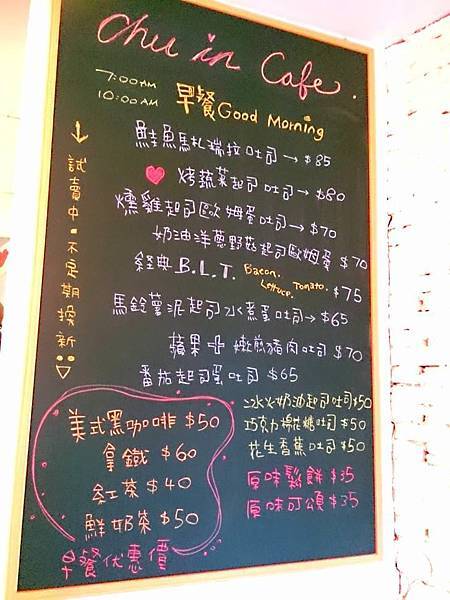 Chu in Cafe.
7:00AM
10:00AM
早餐 Good Morning
試賣中•不定期換新
鮭魚馬札瑞拉吐司→$85
烤蔬菜起司吐司→$80
燻雞起司歐姆蛋吐司→$70
奶油洋蔥野菇起司歐姆蛋 $70
經典B.L.T. Bacon. Lettuce. Tomato. $75
馬鈴薯泥起司水煮蛋吐司→$65
蘋果+嫩煎豬肉吐司 $70
番茄起司蛋吐司 $65
美式黑咖啡 $50
拿鐵 $60
紅茶 $40
鮮奶茶 $50
早餐优惠價
冰火奶油起司吐司$50
巧克力棉花糖吐司$50
花生香蕉吐司$50
原味鬆餅$35
原味可頌$35